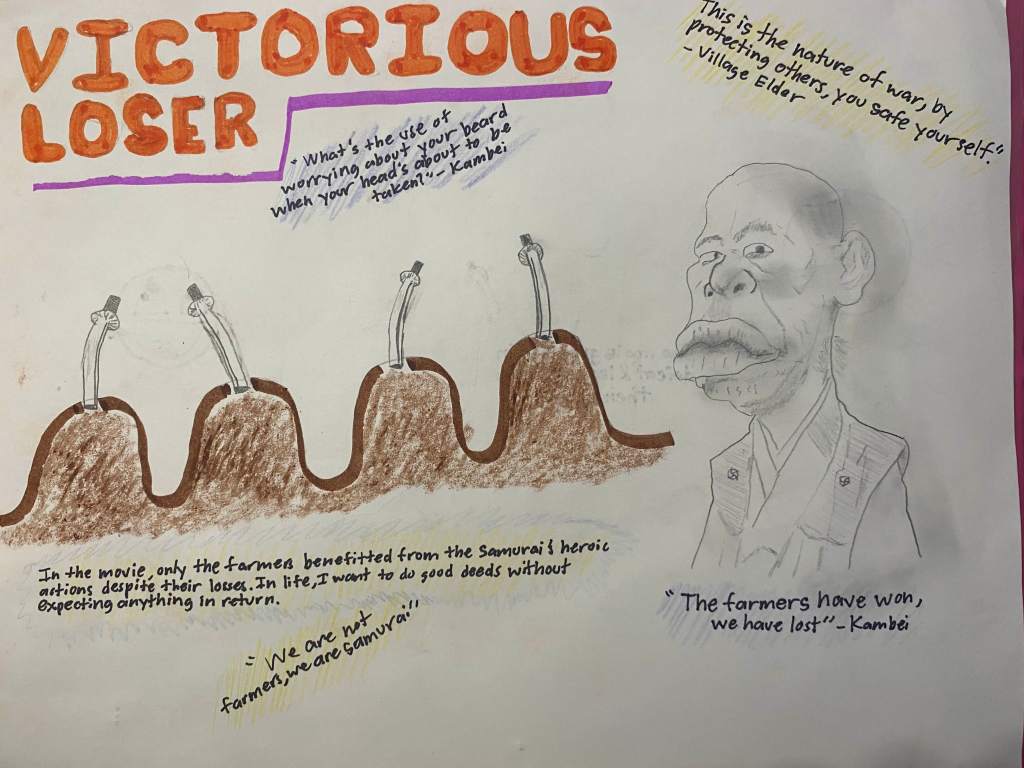 VICTORIOUS
LOSER
"What's the use of
worrying about your beard
when your head's about to be
taken?" - Kambei
This is the nature of war, by
protecting others, you safe yourself."
- Village Elder
In the movie, only the farmers benefitted from the samurai's heroic
actions despite their losses. In life, I want to do good deeds without
expecting anything in return.
"We are not
farmers, we are samurai"
"The farmers have won,
we have lost" - Kambei